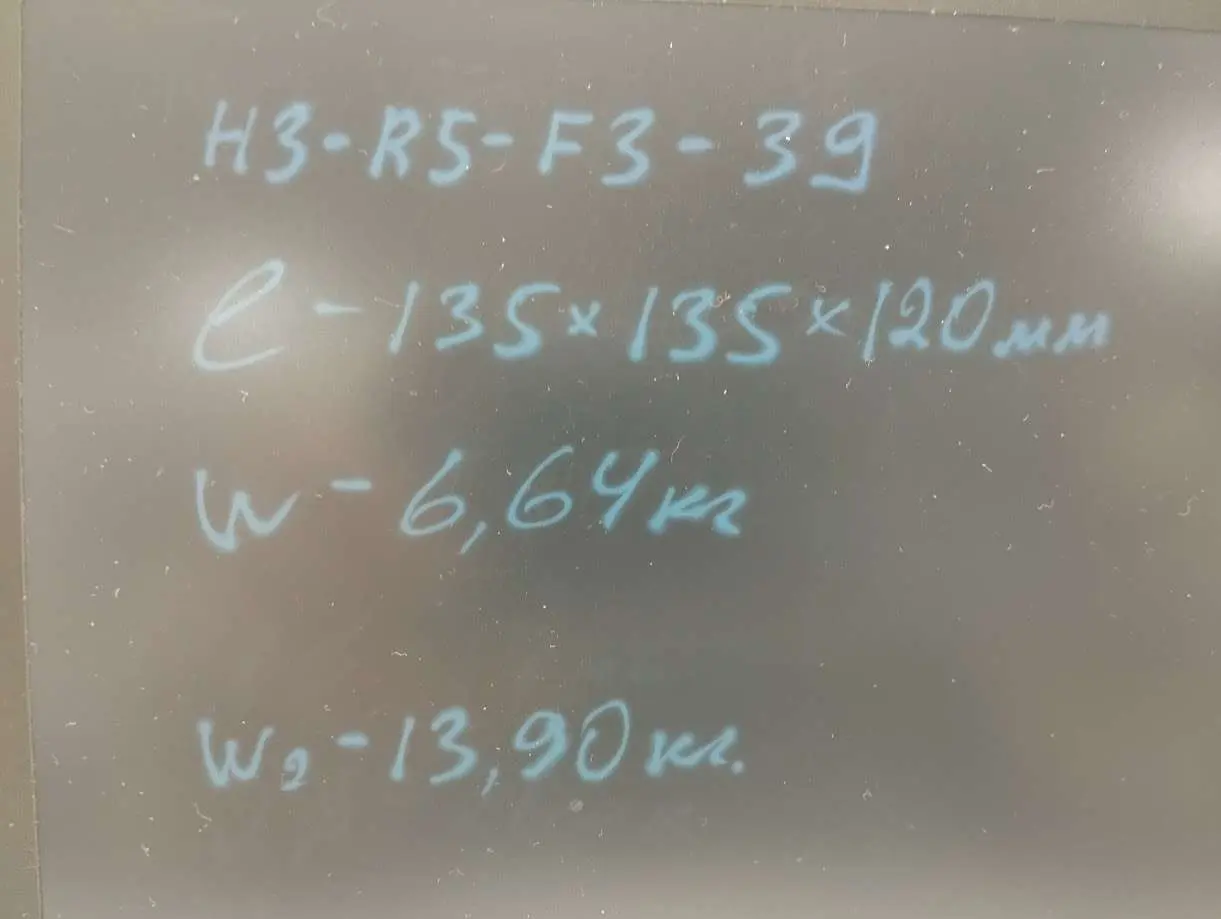 H3-R5-F3-39
l-135×135×120мм
W-6,64кг
W₂-13,90кг.